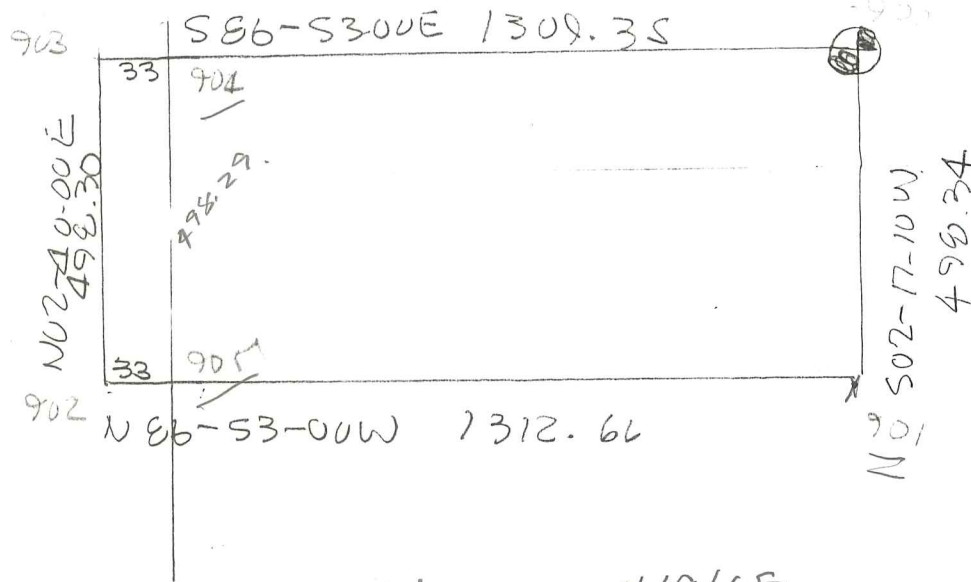 903
S86-5300E 1309.35
33
904
N02-40-00E
498.30
498.29
S02-17-10W
498.34
33
905
902
N 86-53-00W 1312.66
901
N